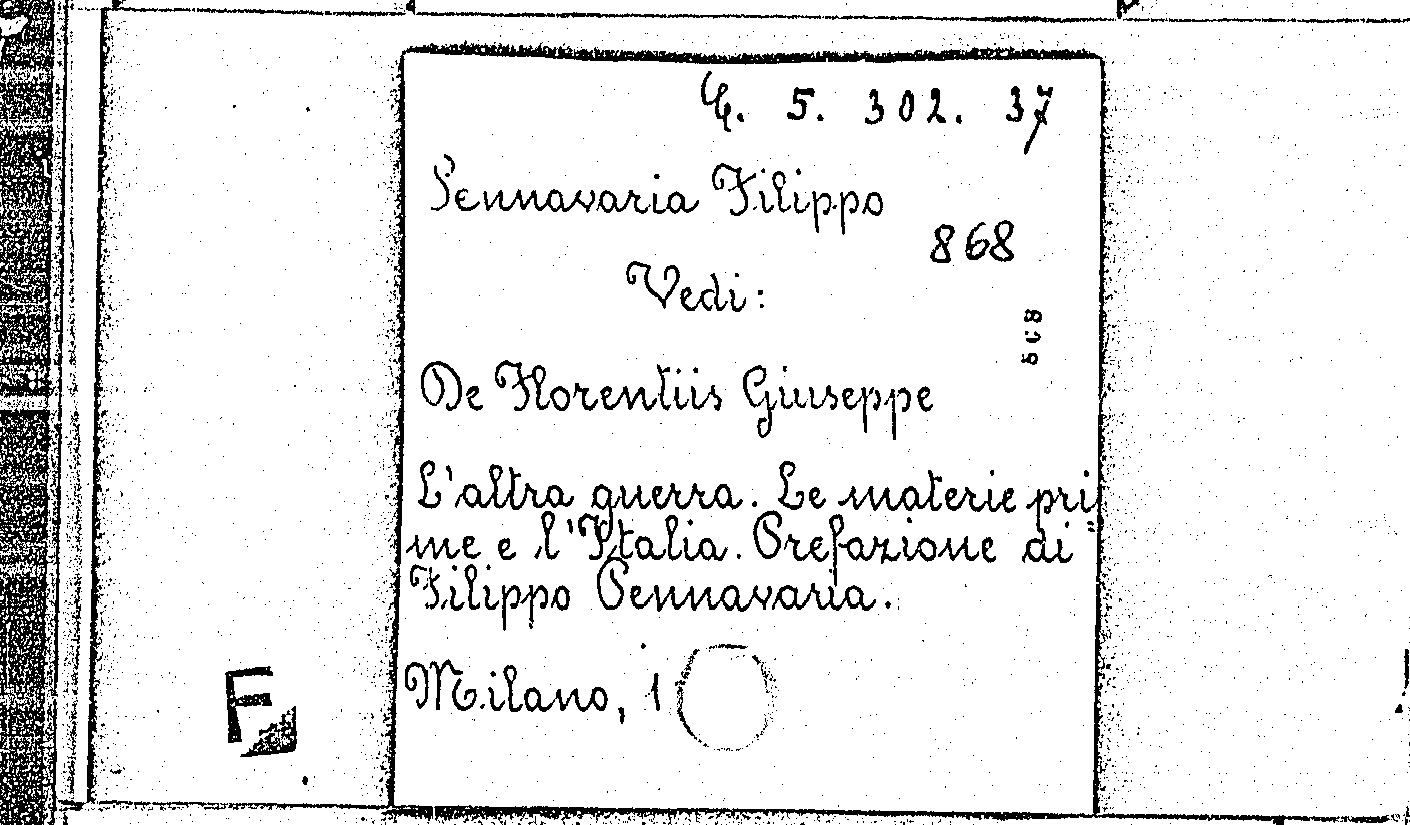 C. 5. 302. 37
Pennavaria Filippo
868
Vedi:
De Florentiis Giuseppe
L'altra guerra. Le materie pri
me e l'Italia. Prefazione di
Filippo Pennavaria.
Milano, 1
F